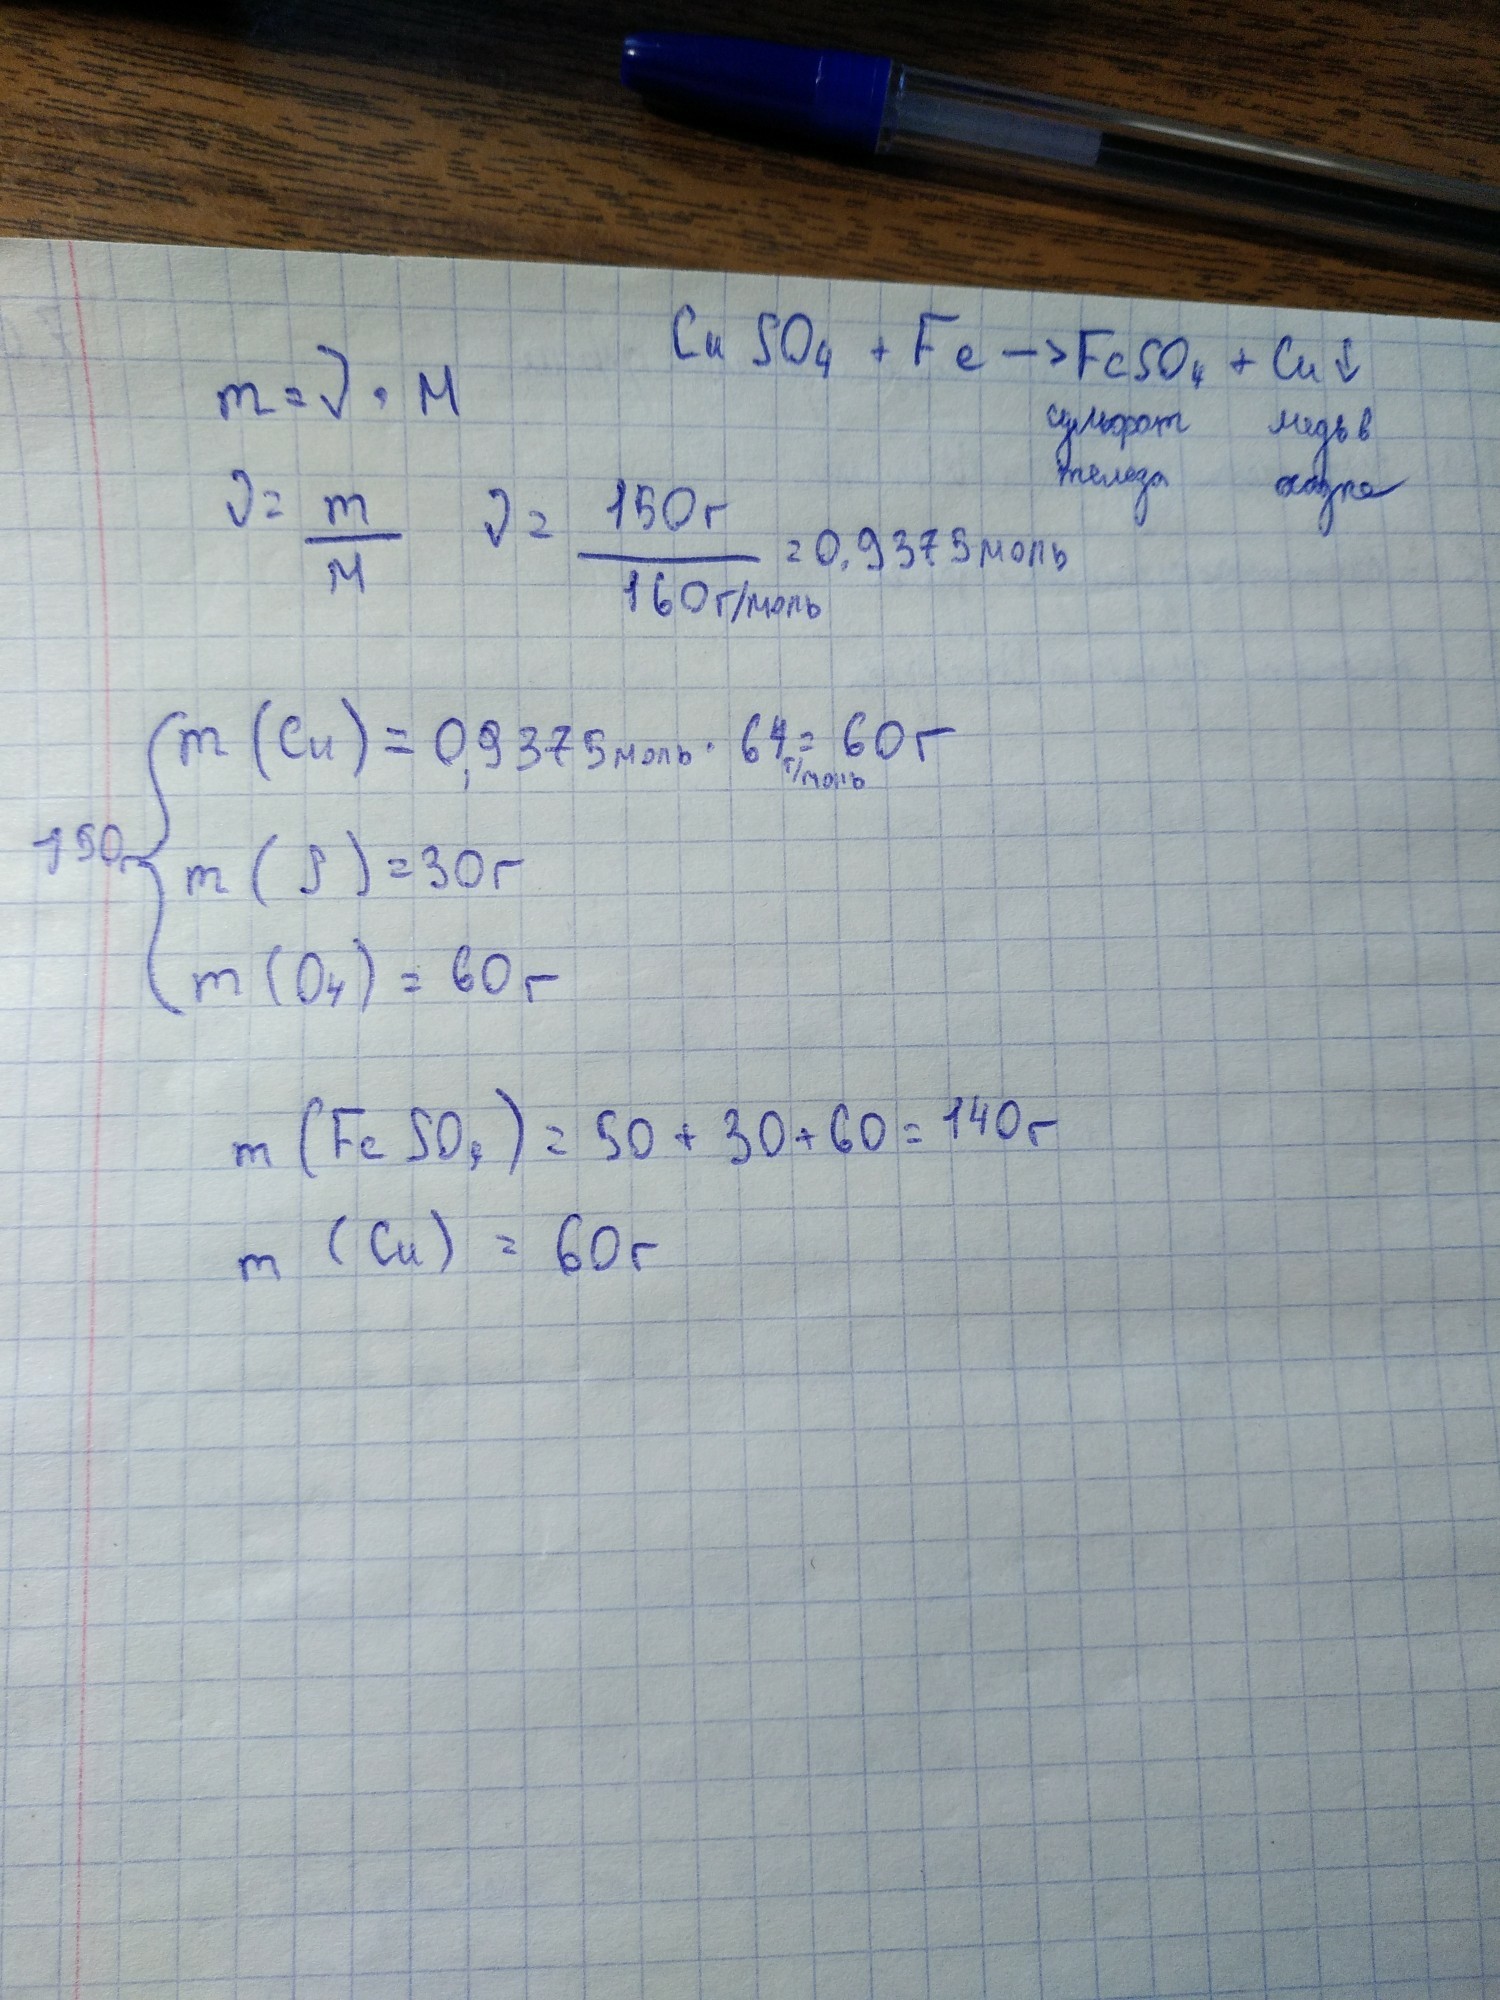 CuSO₄ + Fe → FeSO₄ + Cu↓
сульфат железа
медь в осадке
m = ν · M
ν = m/M ν = 150г/160г/моль = 0,9375 моль
150г { m (Cu) = 0,9375 моль · 64 г/моль = 60г
m (S) = 30г
m (O₄) = 60г
m (FeSO₄) = 50 + 30 + 60 = 140г
m (Cu) = 60г